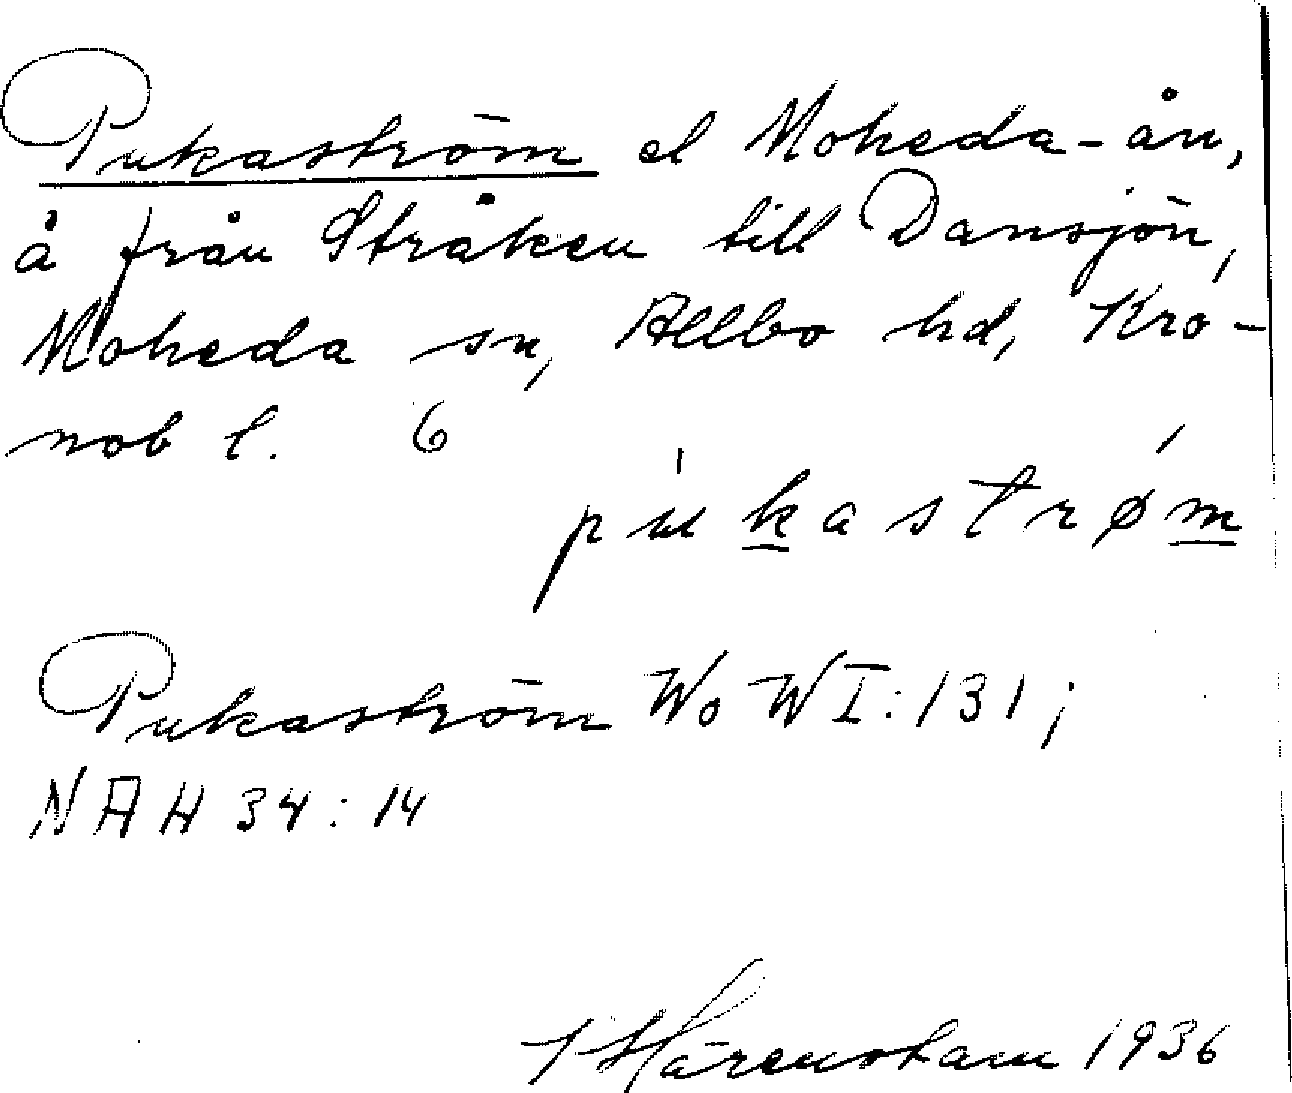 Pukaström el Moheda-ån,
å från Stråken till Dansjön,
Moheda sn, Allbo hd, Kro-
nob l. 6
pu̍kastrø̍m
Pukaström WoW I:131;
NAH 34:14
1936